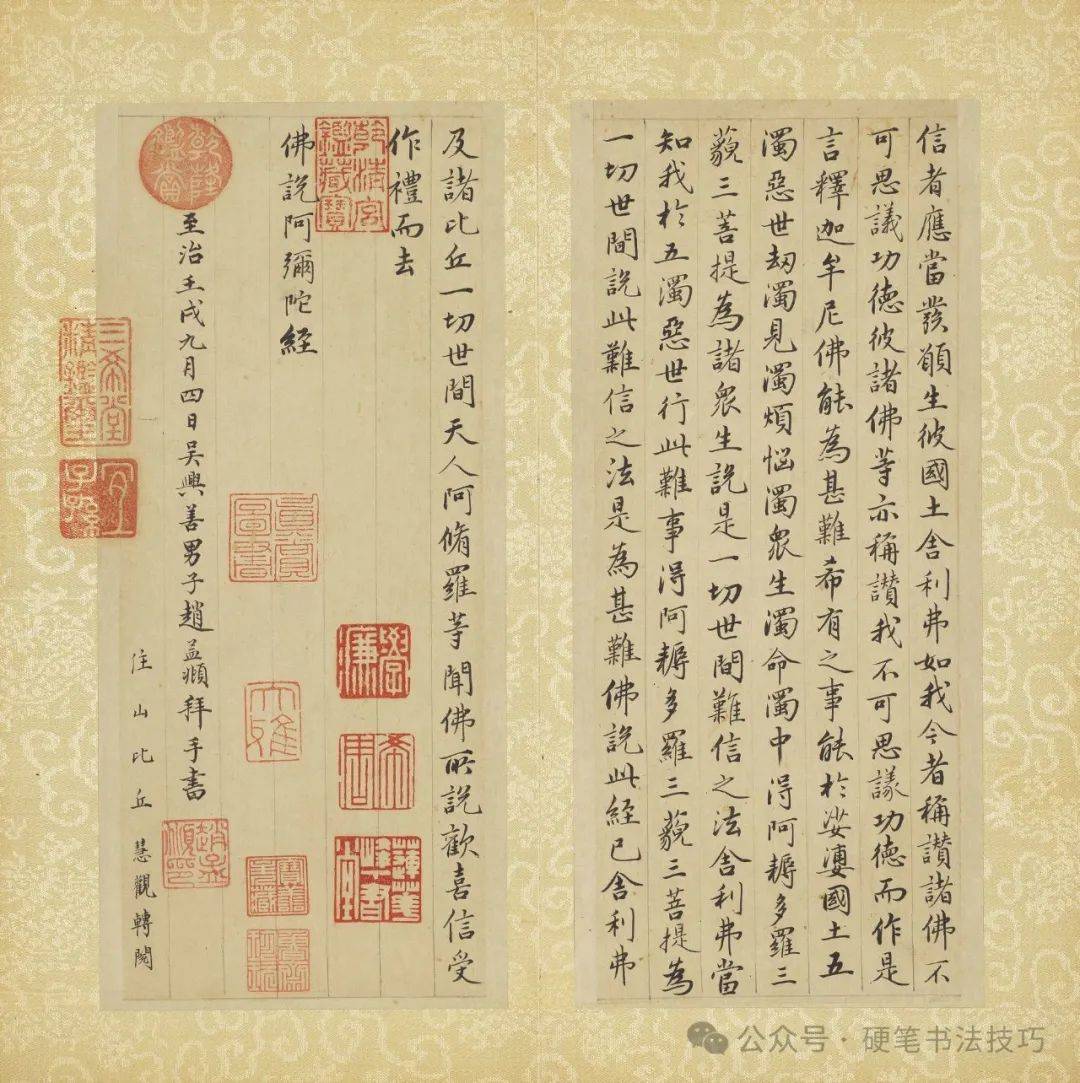 信者應當發願生彼國土舍利弗如我今者稱讚諸佛不
可思議功德彼諸佛等亦稱讚我不可思議功德而作是
言釋迦牟尼佛能為甚難希有之事能於娑婆國土五
濁惡世劫濁見濁煩惱濁眾生濁命濁中得阿耨多羅三
藐三菩提為諸眾生說是一切世間難信之法舍利弗當
知我於五濁惡世行此難事得阿耨多羅三藐三菩提為
一切世間說此難信之法是為甚難佛說此經已舍利弗
及諸比丘一切世間天人阿脩羅等聞佛所說歡喜信受
作禮而去
佛說阿彌陀經
至治壬戌九月四日吳興善男子趙孟頫拜手書
住山比丘慧觀轉閱
乾清宮鑑藏寶
乾隆鑑賞
三希堂精鑑璽
宜子孫
希周
大雅
趙孟頫印
公众号·硬笔书法技巧